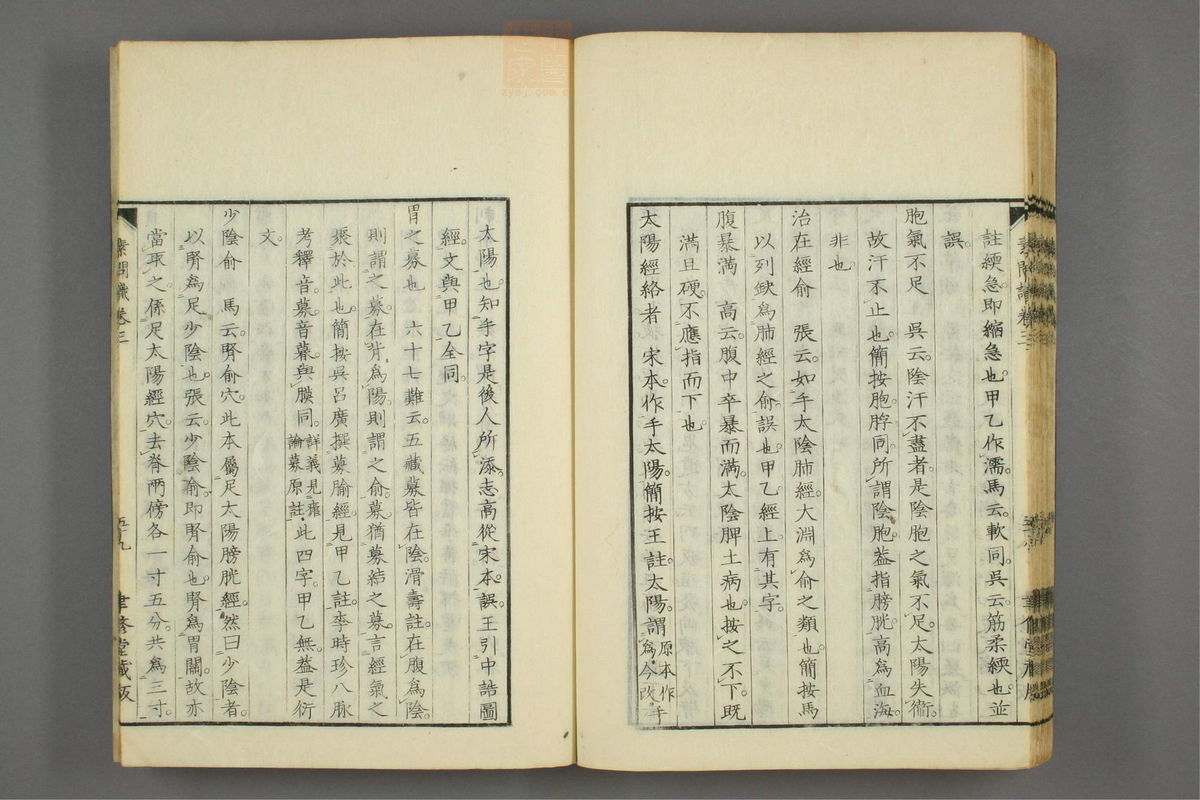 註緛急。即縮急也。甲乙作濡。馬云。軟同。吳云。筋柔緛也。並
誤。
胞氣不足　吳云。陰汗不盡者。是陰胞之氣不足。太陽失衞。
故汗不止也。簡按胞脬同。所謂陰胞。蓋指膀胱。高爲血海。
非也。
治在經俞　張云。如手太陰肺經。大淵爲俞之類也。簡按馬
以列缺爲肺經之俞。誤也。甲乙經上。有其字。
腹暴滿　高云。腹中卒暴而滿。太陰脾土病也。按之不下。既
滿且硬。不應指而下也。
太陽經絡者　宋本。作手太陽。簡按王註。太陽。謂原本作爲。今改。手
素問識卷三
太陽也。知手字是後人所添。志高從宋本。誤。王引中誥圖
經。文與甲乙全同。
胃之募也　六十七難云。五藏募皆在陰。滑壽註。在腹爲陰。
則謂之募。在背爲陽。則謂之俞。募猶募結之募。言經氣之
聚於此也。簡按吳呂廣撰募腧經。見甲乙註。李時珍八脉
考釋音。募音暮。與膜同。詳義見雍論募原註。此四字。甲乙無。蓋是衍
文。
少陰俞　馬云。腎俞穴。此本屬足太陽膀胱經。然曰少陰者。
以腎爲足少陰也。張云。少陰俞。即腎俞也。腎爲胃關。故亦
當取之。係足太陽經穴。去脊兩傍各一寸五分。共爲三寸。
素問識卷三
五十九
聿修堂藏版